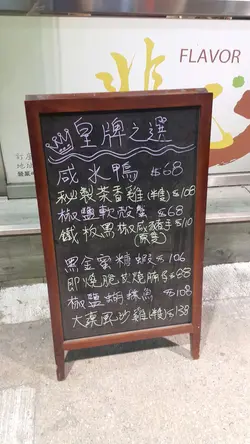 FLAVOR
皇牌之選
咸水鴨 $68
秘製茶香雞(半隻)$108
椒鹽軟殼蟹 $68
鐵板黑椒咸豬手 $110
黑金蜜糖蝦 $106
即燒脆皮燒腩仔 $68
椒鹽蝴蝶魚 $108
大漠風沙雞(隻)$138